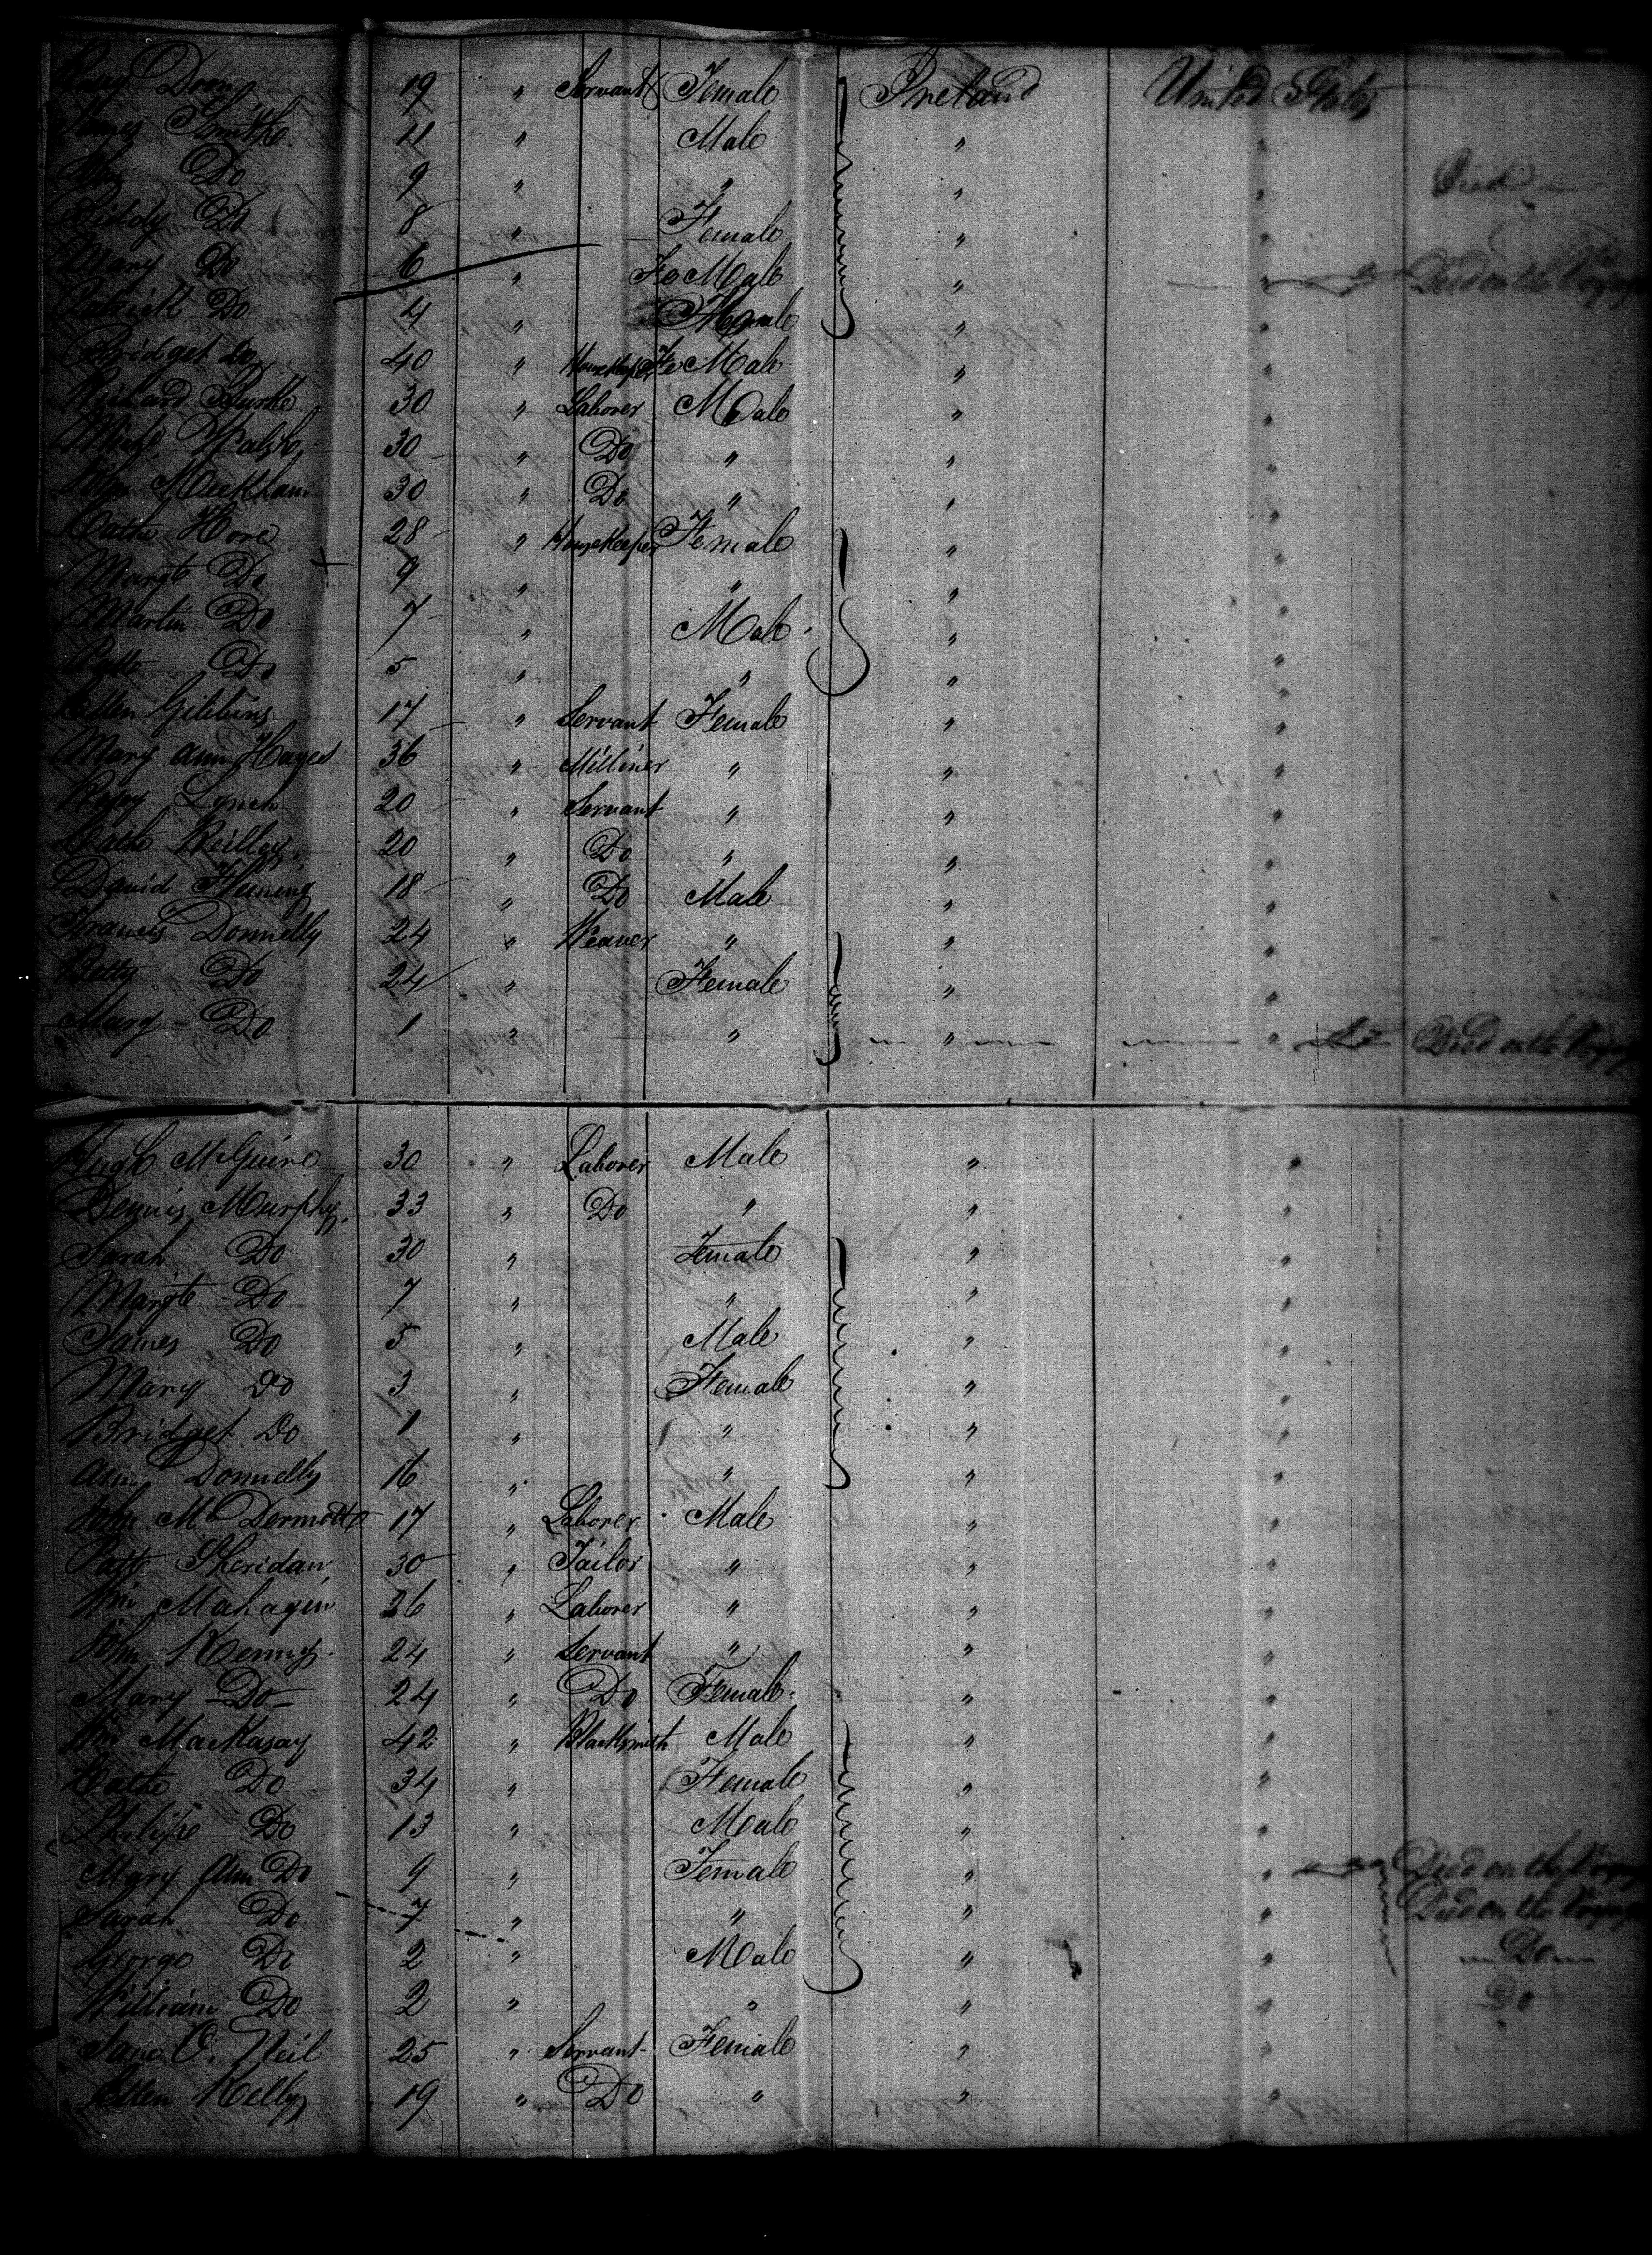 19 " Servant Female Ireland United States
Smith 11 " Male " "
Do 9 " " " " Died
Biddy Do 8 " Female " "
Mary Do 6 " FeMale " " Died on the Voyage
Patrick Do 4 " Male " "
Bridget Do 40 " Housekeeper FeMale "
Richard Burke 30 " Laborer Male " "
Walsh 30 " Do " " "
John 30 " Do " " "
Cathe Hore 28 " Housekeeper Female " "
Margt Do 9 " " " "
Martin Do 7 " Male " "
Do 5 " " " "
Ellen Gibbins 17 " Servant Female " "
Mary Ann Hayes 36 " Milliner " " "
Lynch 20 " Servant " " "
Cathe Reilley 20 " Do " " "
David Fleming 18 " Do Male " "
Francis Donnelly 24 " Weaver " " "
Betty Do 24 " Female " "
Mary Do 1 " " " " Died on the Voyage
Hugh McGuire 30 " Laborer Male " "
Dennis Murphy 33 " Do " " "
Sarah Do 30 " Female " "
Margt Do 7 " " " "
James Do 5 " Male " "
Mary Do 3 " Female " "
Bridget Do 1 " " " "
Ann Donnelly 16 " " " "
John McDermott 17 " Laborer Male " "
Patt Sheridan 30 " Tailor " " "
Wm Mahagin 26 " Laborer " " "
John Kenny 24 " Servant " " "
Mary Do 24 " Do Female " "
Wm Mackasay 42 " Blacksmith Male " "
Cathe Do 34 " Female " "
Do 13 " Male " "
Mary Ann Do 9 " Female " " Died on the Voyage
Sarah Do 7 " " " " Died on the Voyage
George Do 2 " Male " " Do
William Do 2 " " " " Do
Jane O. Neil 25 " Servant Female " "
Ellen Kelly 19 " Do " " "